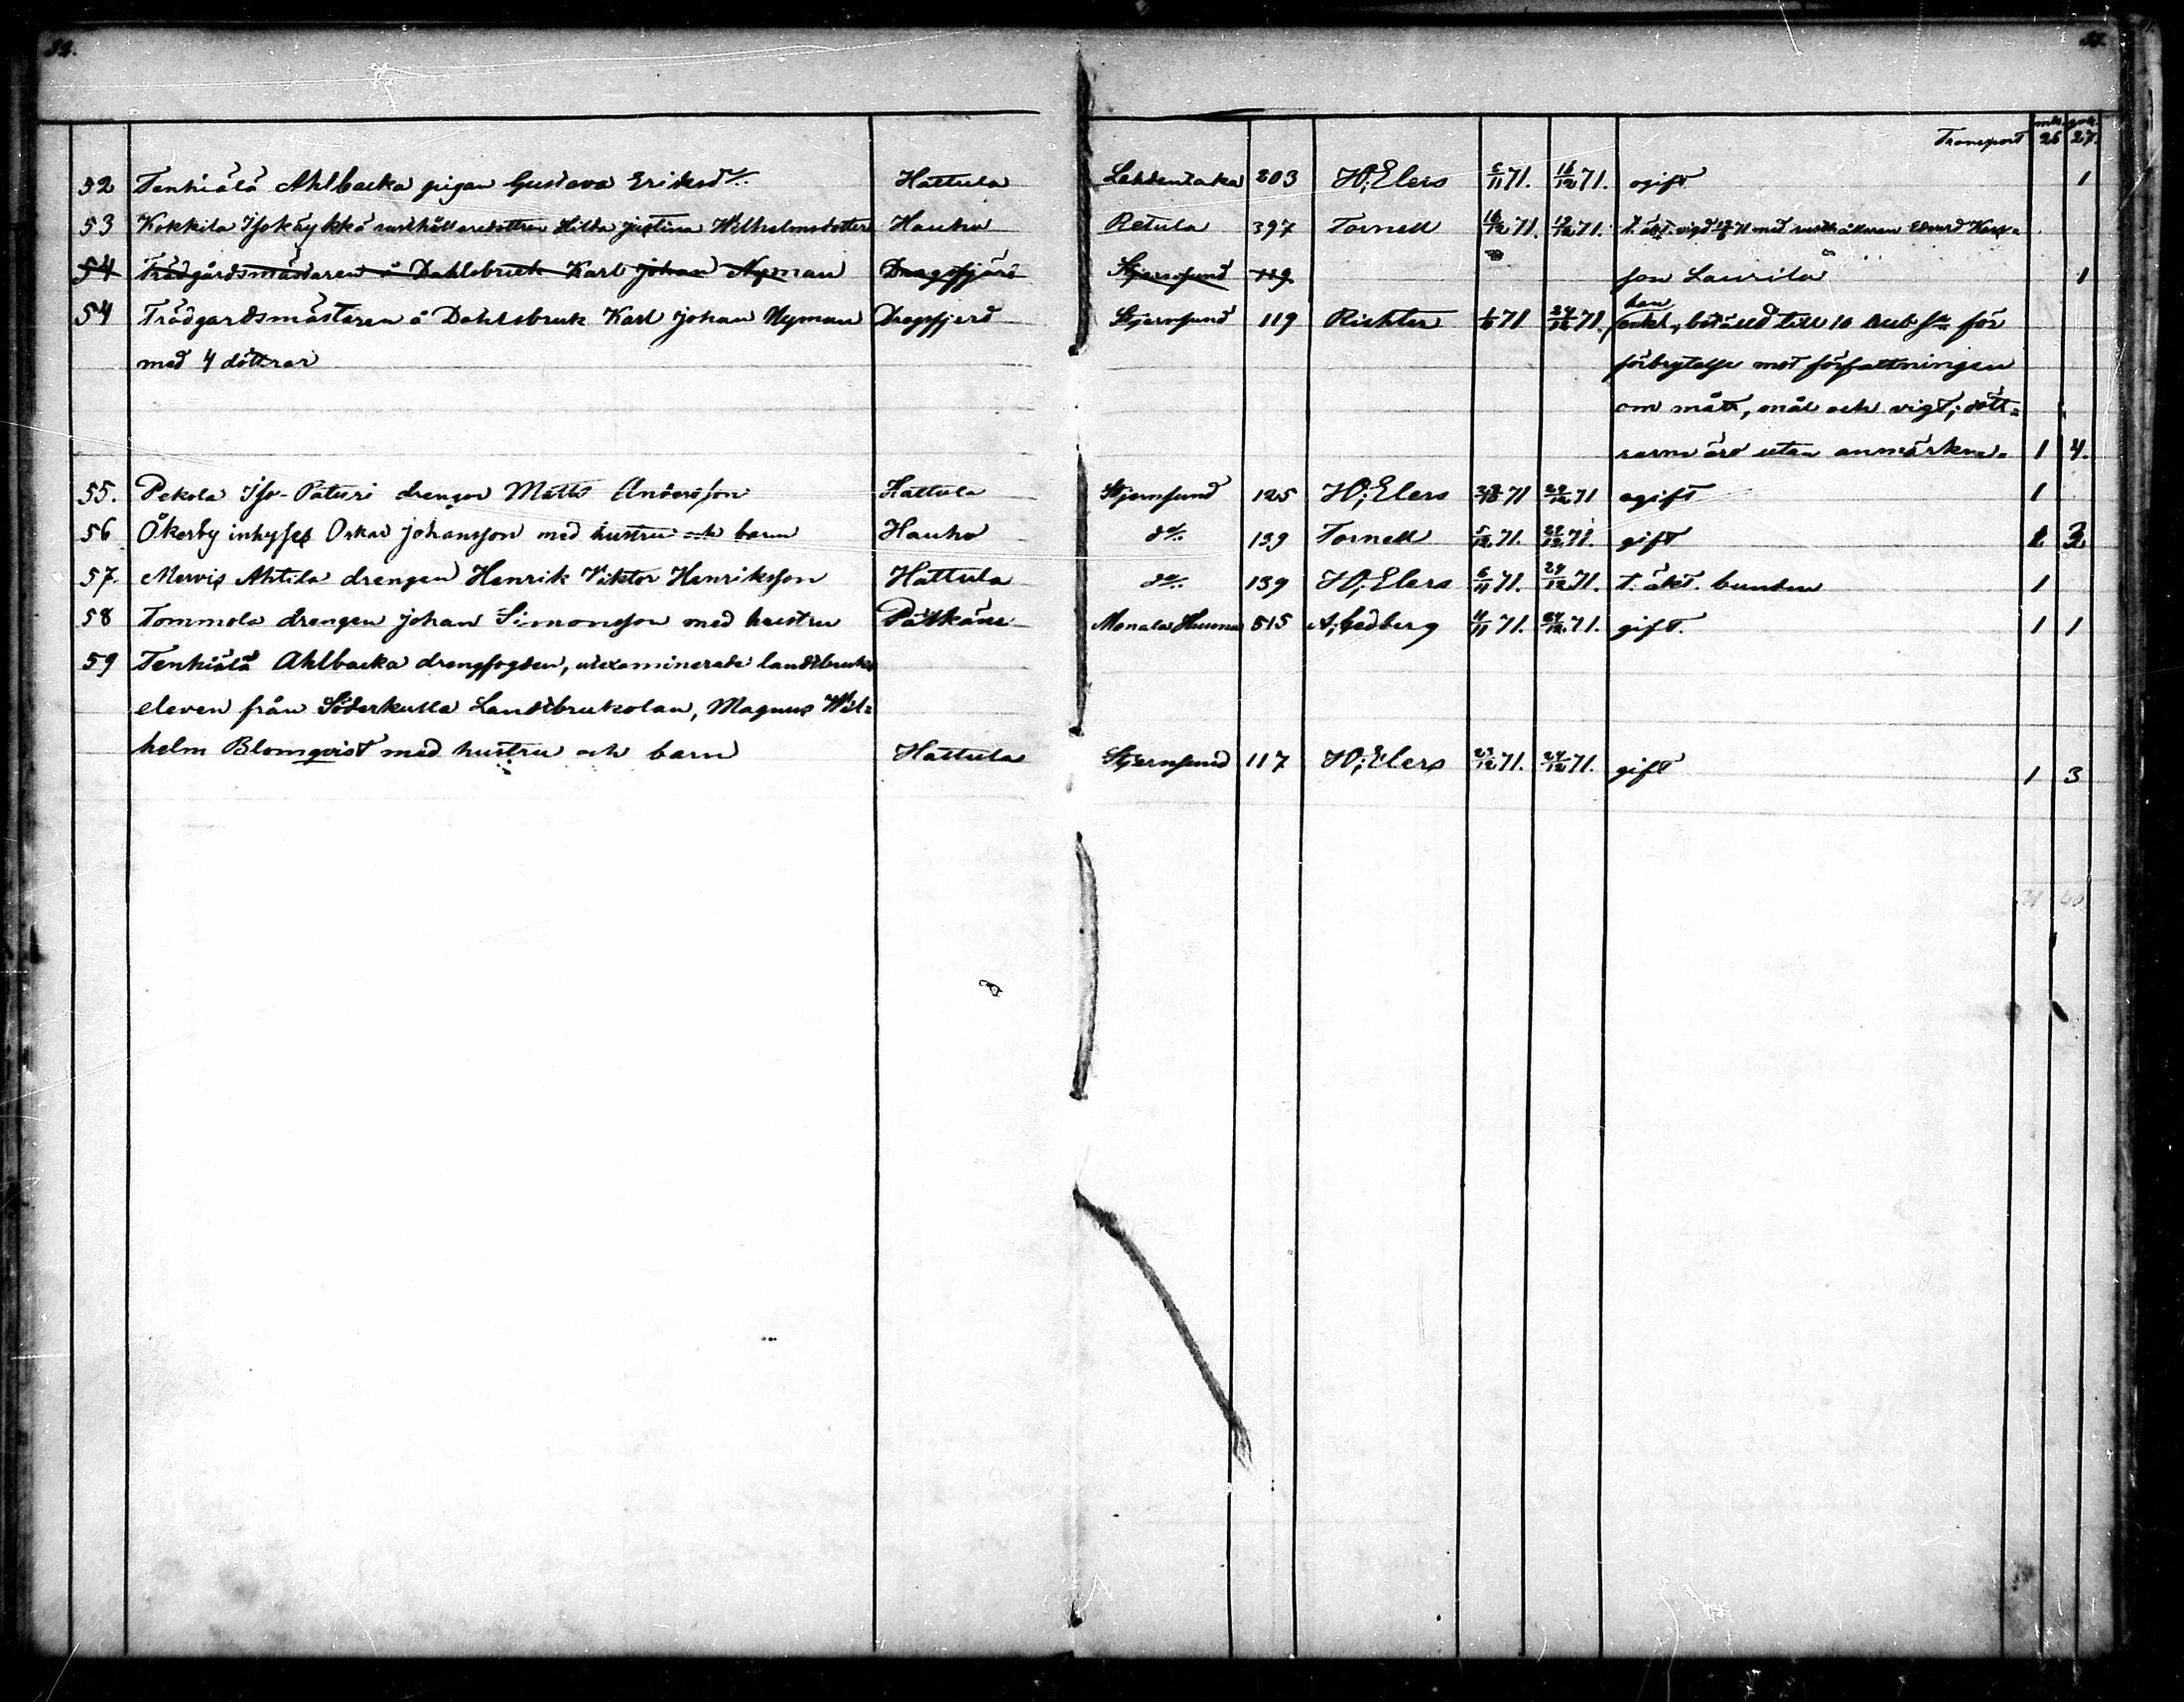 32.
Transport mk. qvk.
26 27.
52 Tenhiälä Ahlbacka pigan Gustava Eriksd/. Hattula 203 H; Elers 6/11 71. 16/12 71. ogift 1
53 Kokkila Isokäykkä rusthållaredottren Hilda Justina Wilhelmsdotter Hauho Retula 397 Tornell 16/12 71. 19/12 71. t. äkt. vigd 71 med rusthållaren Edvard
54 Trädgårdsmästaren å Dahlsbruk Karl Johan Nyman Dragsfjärd Stjernsund 119 son Laurila 1
54 Trädgardsmästaren å Dahlsbruk Karl Johan Nyman Dragsfjerd Stjernsund 119 Richter 71 24/12 71. enkl., bötälld till 10 Rub. för
med 4 döttrar förbrytelse mot författningen
om mått, mål och vigt; dött=
rarna äro utan anmärkn. 1 4.
55. Pekola Iso-Paturi drengen Matts Andersson Hattula Stjernsund 125 H; Elers 71 22/12 71 ogift 1
56 Åkerby inhyses Oskar Johansson med hustru och barn Hauho d:o/. 139 Tornell 5/12 71. 22/12 71. gift 2
57. Mervis Ahtila drengen Henrik Viktor Henriksson Hattula d:o/. 139 H; Elers 6/11 71. 24/12 71. t. äkt. bunden 1
58 Tommola drengen Johan Simonsson med hustru Pälkäne 515 A; Cedberg 11 71. 24/12 71. gift. 1 1
59 Tenhiälä Ahlbacka drengfogden, utexaminerade landtbruks
eleven från Söderkulla Landtbrukolan, Magnus Wil=
helm Blomqvist med hustru och barn Hattula Stjernsund 117 H; Elers 23/12 71. 24/12 71. gift 1 3